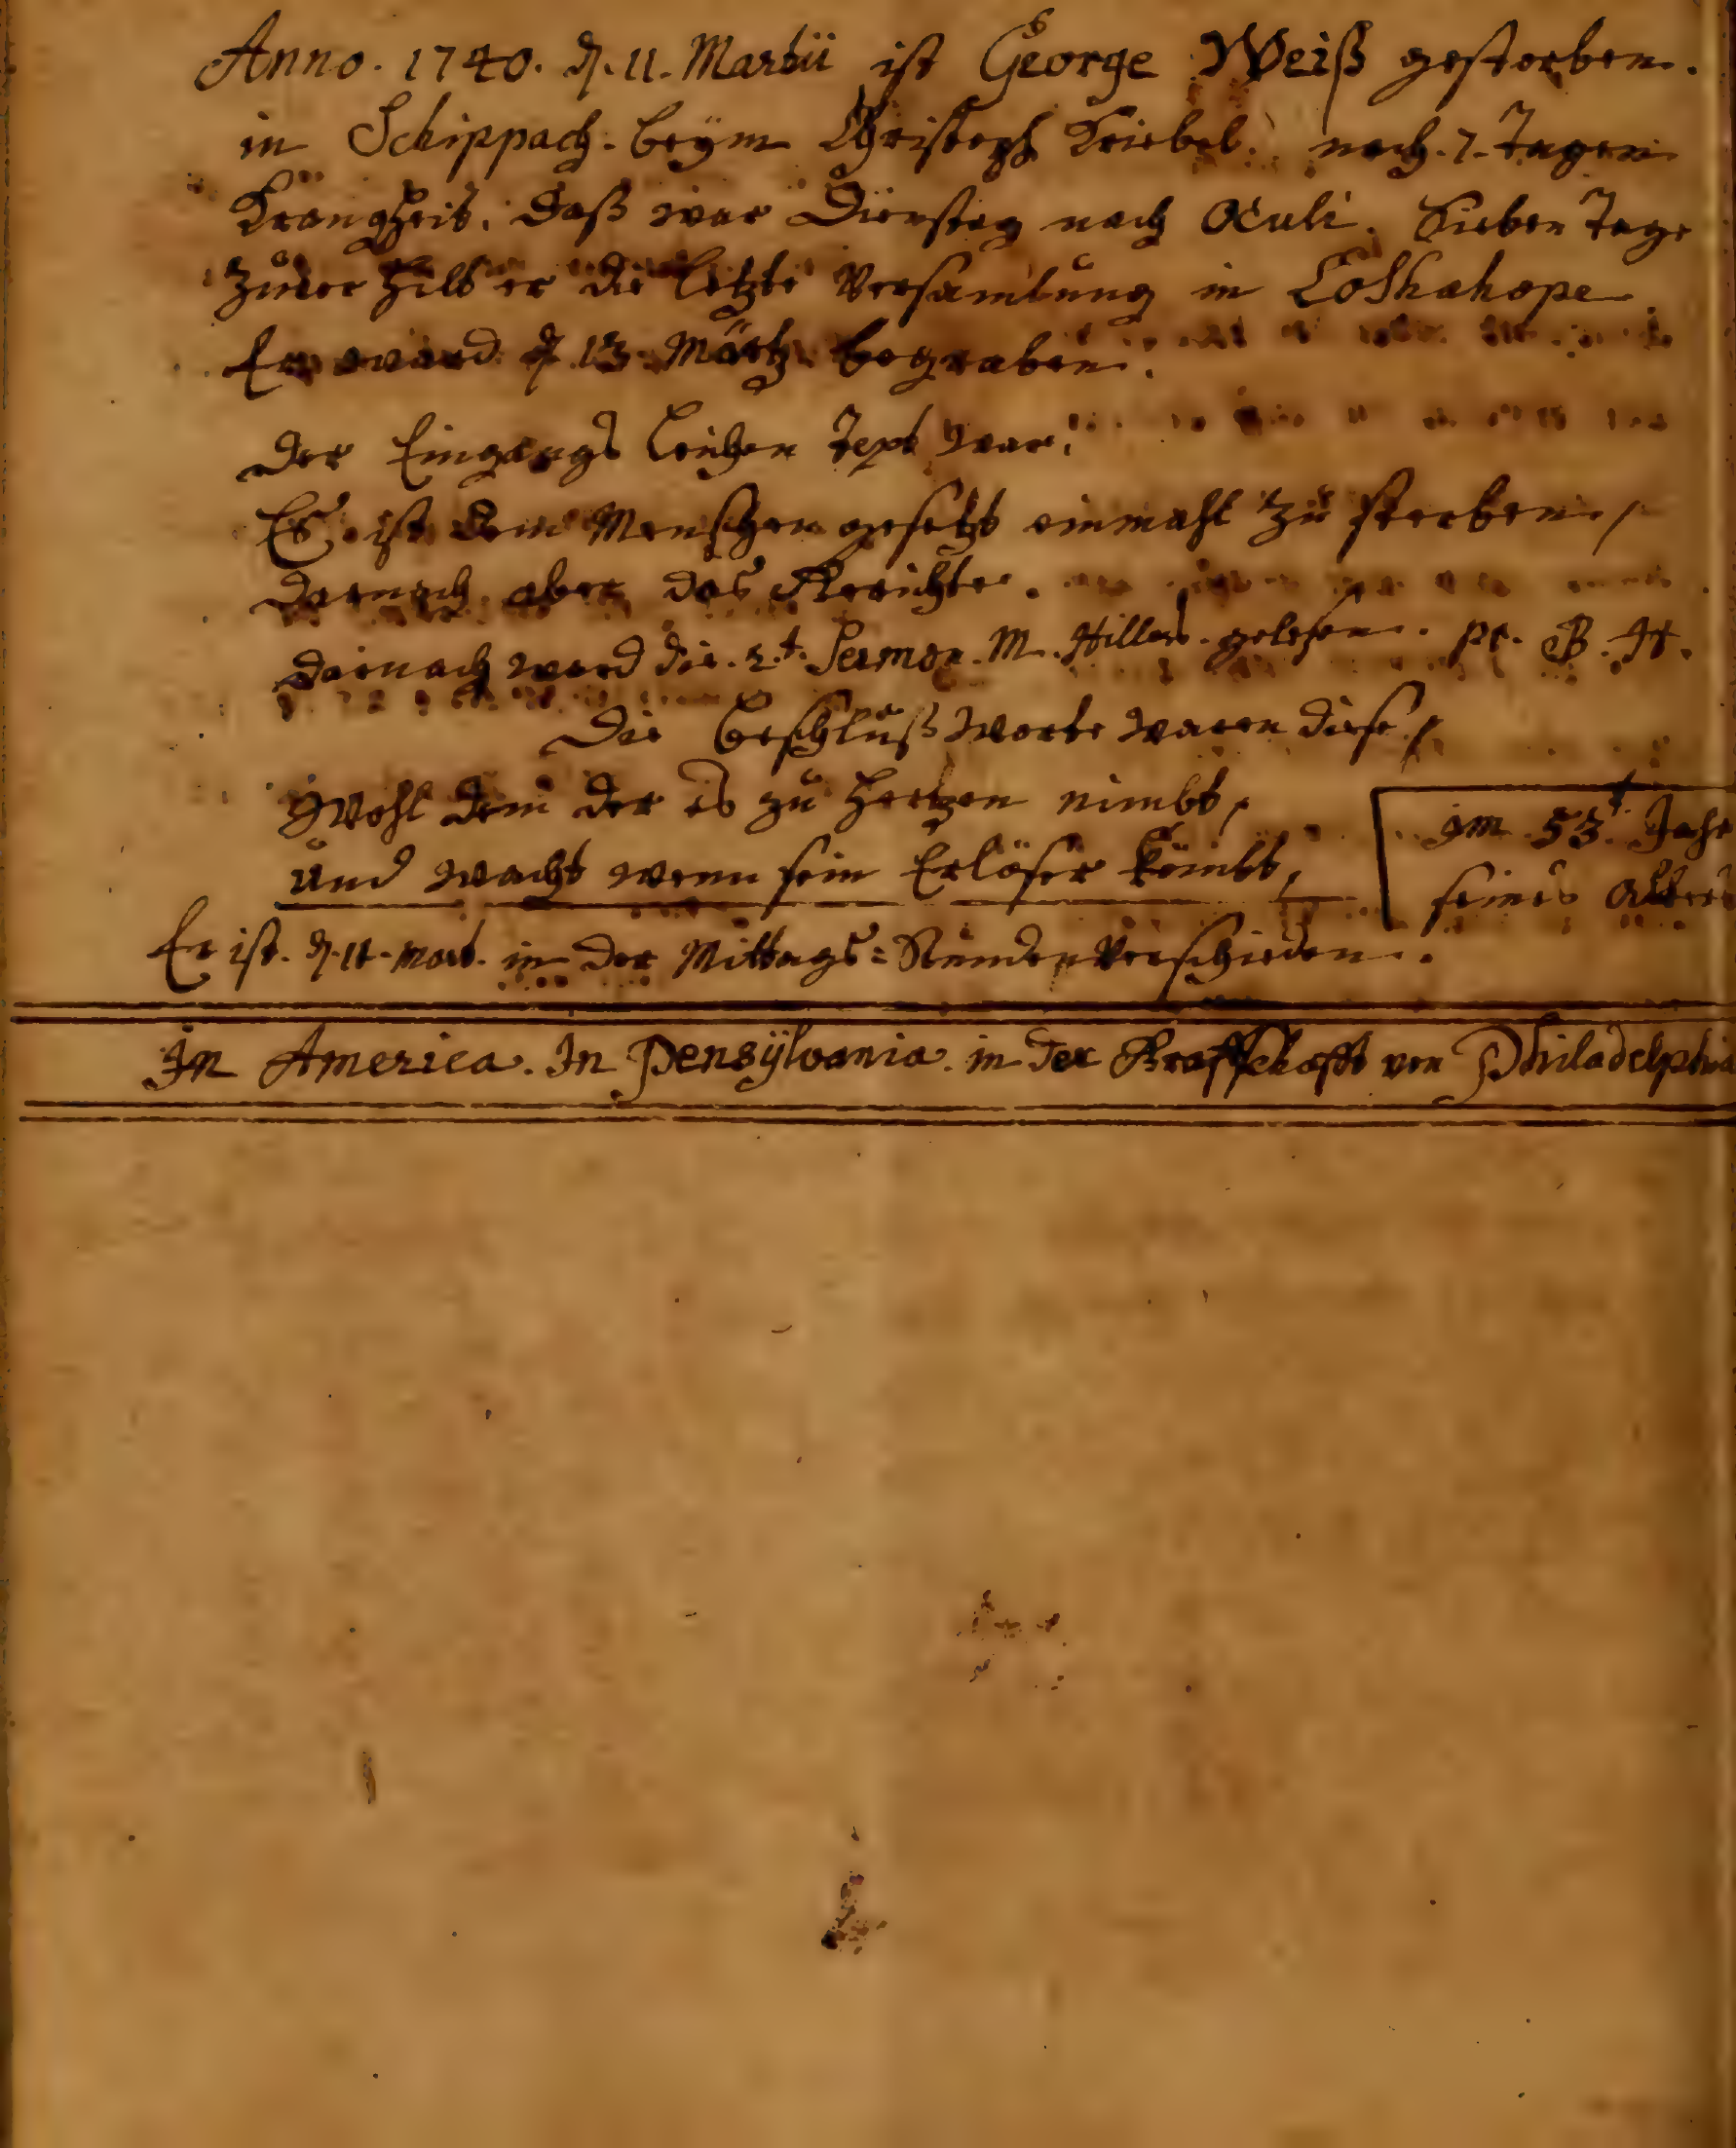 Anno. 1740. d. 11. Martii ist George Weiß gestorben.
in Schippach. beÿm Christoph Kriebel. nach. 7. Tagen
Krangheit. Daß war Dienstag nach Oculi. Sieben Tage
Zuvor hilt er die letzte Versamlung in Coshahope
Er ward d. 13. Märtz begraben.
Der Eingangs Leichen Text war.
Es ist dem Menschen gesetzt einmahl zu sterben,
Darnach aber das Gerichte.
Darnach ward die. 2.t. Sermon. M. Hillers. gelesen. pr. B. H.
Die Beschluß Worte waren diese,
Wohl dem der es zu Hertzen nimbt,
Und wacht wenn sein Erlöser kömbt,
im 53.t Jahr
seines Alters
Er ist. d. 11. Mart. in der Mittags=Stunden Verschieden.
In America. In Pensÿlvania. in der Graffschafft von Philadelphia